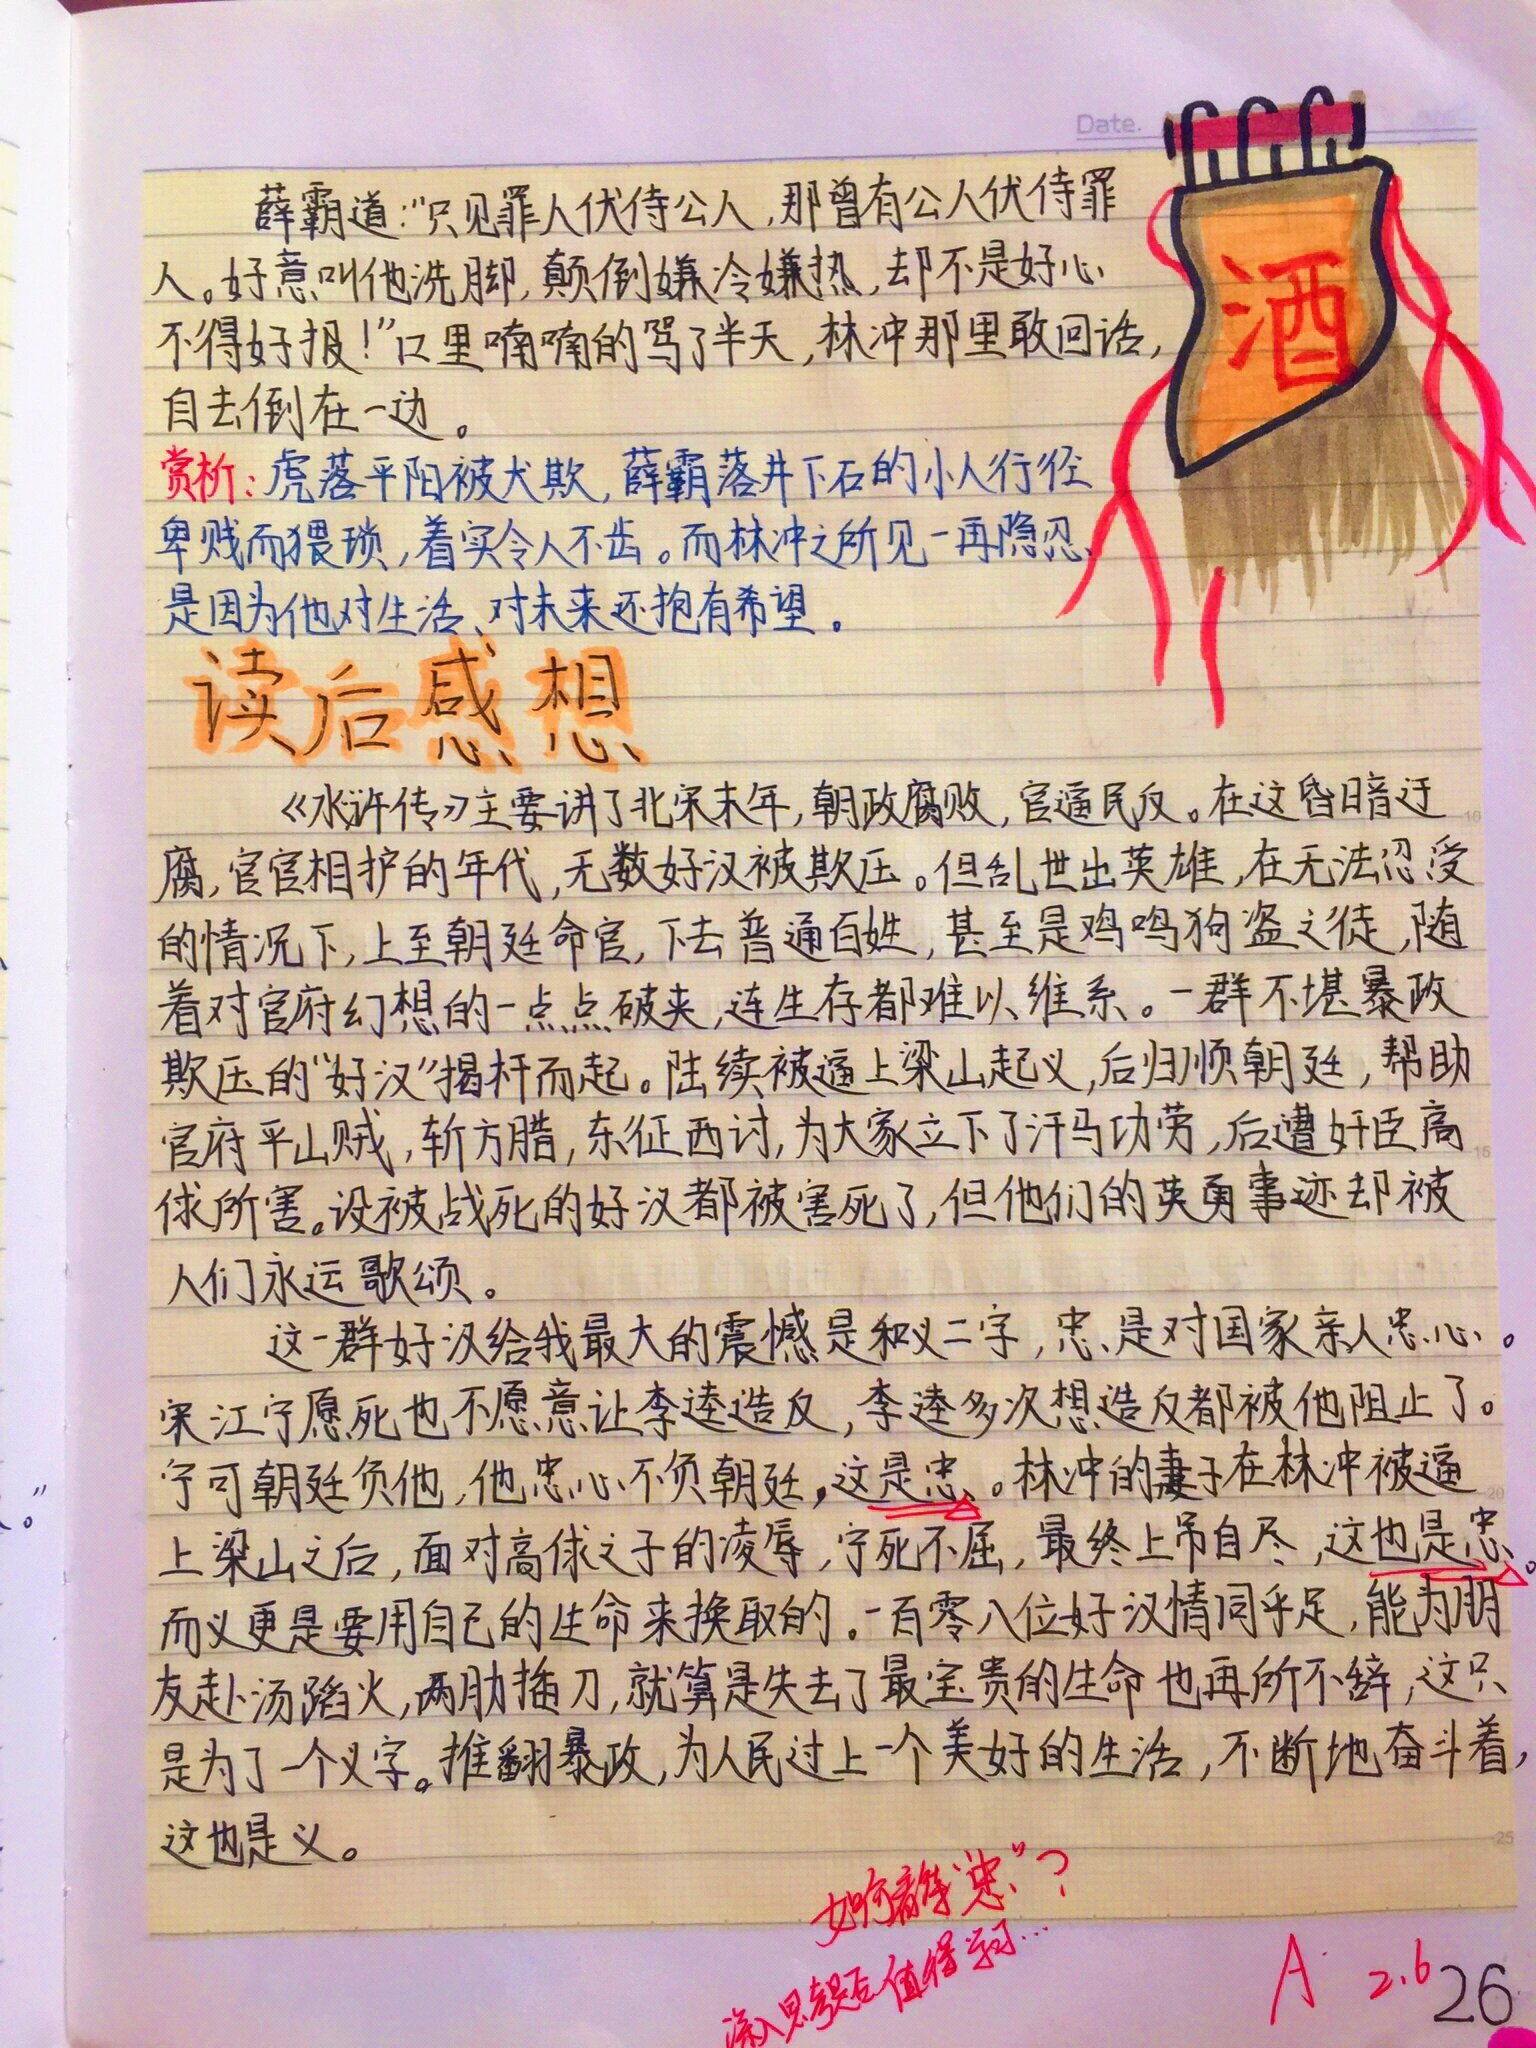 Date.
薛霸道:"只见罪人伏侍公人,那曾有公人伏侍罪
人。好意叫他洗脚,颠倒嫌冷嫌热,却不是好心
不得好报!"口里喃喃的骂了半天,林冲那里敢回话,
自去倒在一边。
酒
赏析:虎落平阳被犬欺,薛霸落井下石的小人行径
卑贱而猥琐,着实令人不齿。而林冲之所见一再隐忍、
是因为他对生活、对未来还抱有希望。
读后感想
《水浒传》主要讲了北宋末年,朝政腐败,官逼民反。在这昏暗迂
腐,官官相护的年代,无数好汉被欺压。但乱世出英雄,在无法忍受
的情况下,上至朝廷命官,下去普通百姓,甚至是鸡鸣狗盗之徒,随
着对官府幻想的一点点破灭,连生存都难以维系。一群不堪暴政
欺压的"好汉"揭杆而起。陆续被逼上梁山起义,后归顺朝廷,帮助
官府平山贼,斩方腊,东征西讨,为大家立下了汗马功劳,后遭奸臣高
俅所害。没被战死的好汉都被害死了,但他们的英勇事迹却被
人们永远歌颂。
这一群好汉给我最大的震憾是和义二字,忠是对国家亲人忠心。
宋江宁愿死也不愿意让李逵造反,李逵多次想造反都被他阻止了。
宁可朝廷负他,他忠心不负朝廷,这是忠。林冲的妻子在林冲被逼
上梁山之后,面对高俅之子的凌辱,宁死不屈,最终上吊自尽,这也是忠。
而义更是要用自己的生命来换取的。一百零八位好汉情同手足,能为朋
友赴汤蹈火,两肋插刀,就算是失去了最宝贵的生命也再所不辞,这只
是为了一个义字。推翻暴政,为人民过上一个美好的生活,不断地奋斗着,
这也是义。
如何看待"忠"?
深入思考是否值得学习…
A 2.6
26
5
10
15
20
25